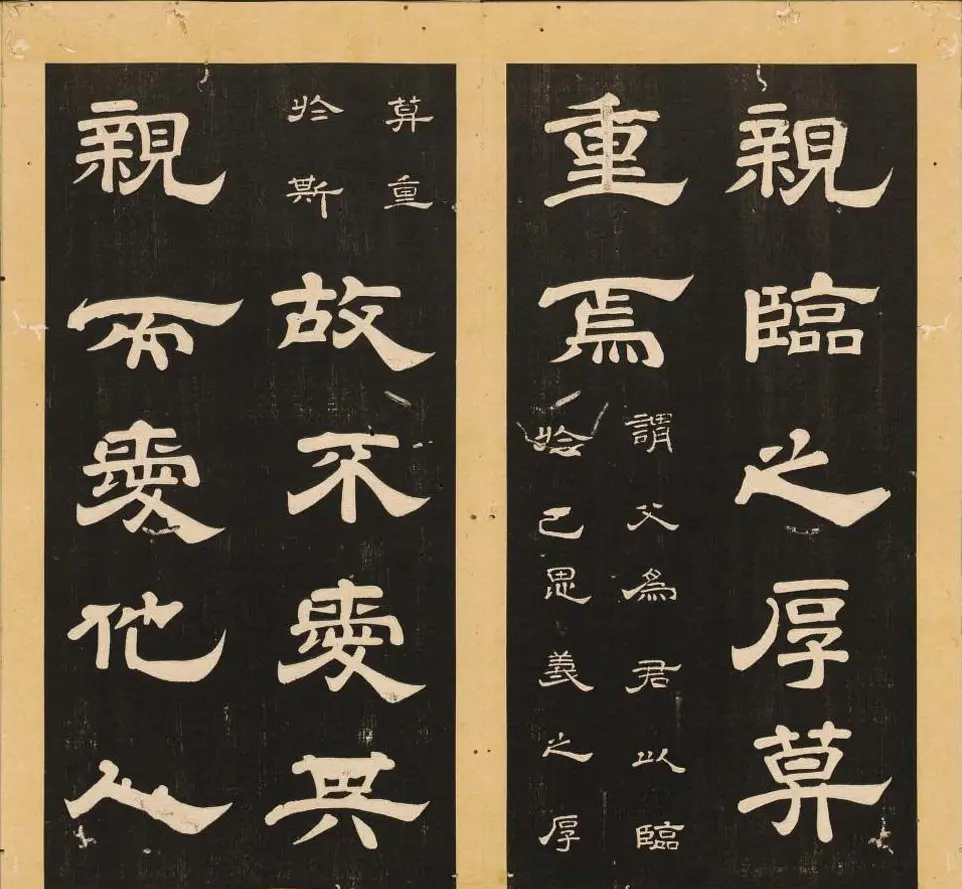 親臨之厚莫
重焉
謂父爲君以臨
於己恩義之厚
莫重
於斯
故不愛其
親而愛他人